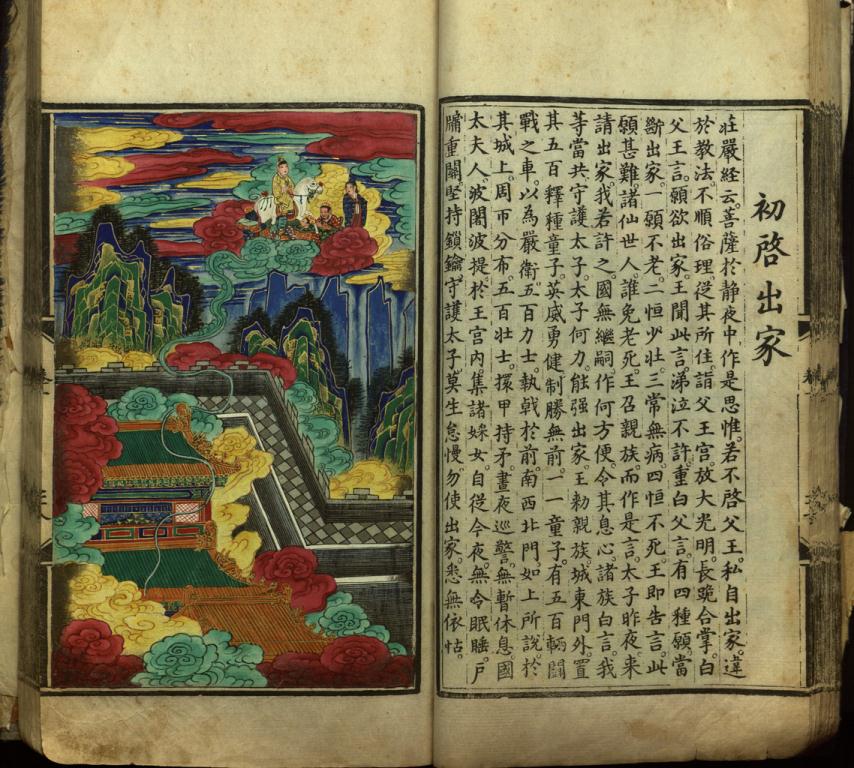 初啓出家
莊嚴經云。菩薩於静夜中。作是思惟。若不啓父王。私自出家。違
於教法。不順俗理。從其所住。詣父王宫。放大光明。長跪合掌。白
父王言。願欲出家。王聞此言。涕泣不許。重白父言。有四種願。當
斷出家。一願不老。二恒少壯。三常無病。四恒不死。王即告言。此
願甚難。諸仙世人。誰免老死。王召親族。而作是言。太子昨夜。來
請出家。我若許之。國無繼嗣。作何方便。令其息心。諸族白言。我
等當共守護太子。太子何力。能强出家。王勑親族。城東門外。置
其五百釋種童子。英威勇健。制勝無前。一一童子。有五百輛鬬
戰之車。以為嚴衛。五百力士。執戟於前。南西北門。如上所說。於
其城上。周帀分布。五百壯士。擐甲持矛。晝夜巡警。無暫休息。國
太夫人。波闍波提。於王宫内。集諸婇女。自從今夜。無令眠睡。戸
牖重關。堅持鎖鑰。守護太子。莫生怠慢。勿使出家。悉無依怙。